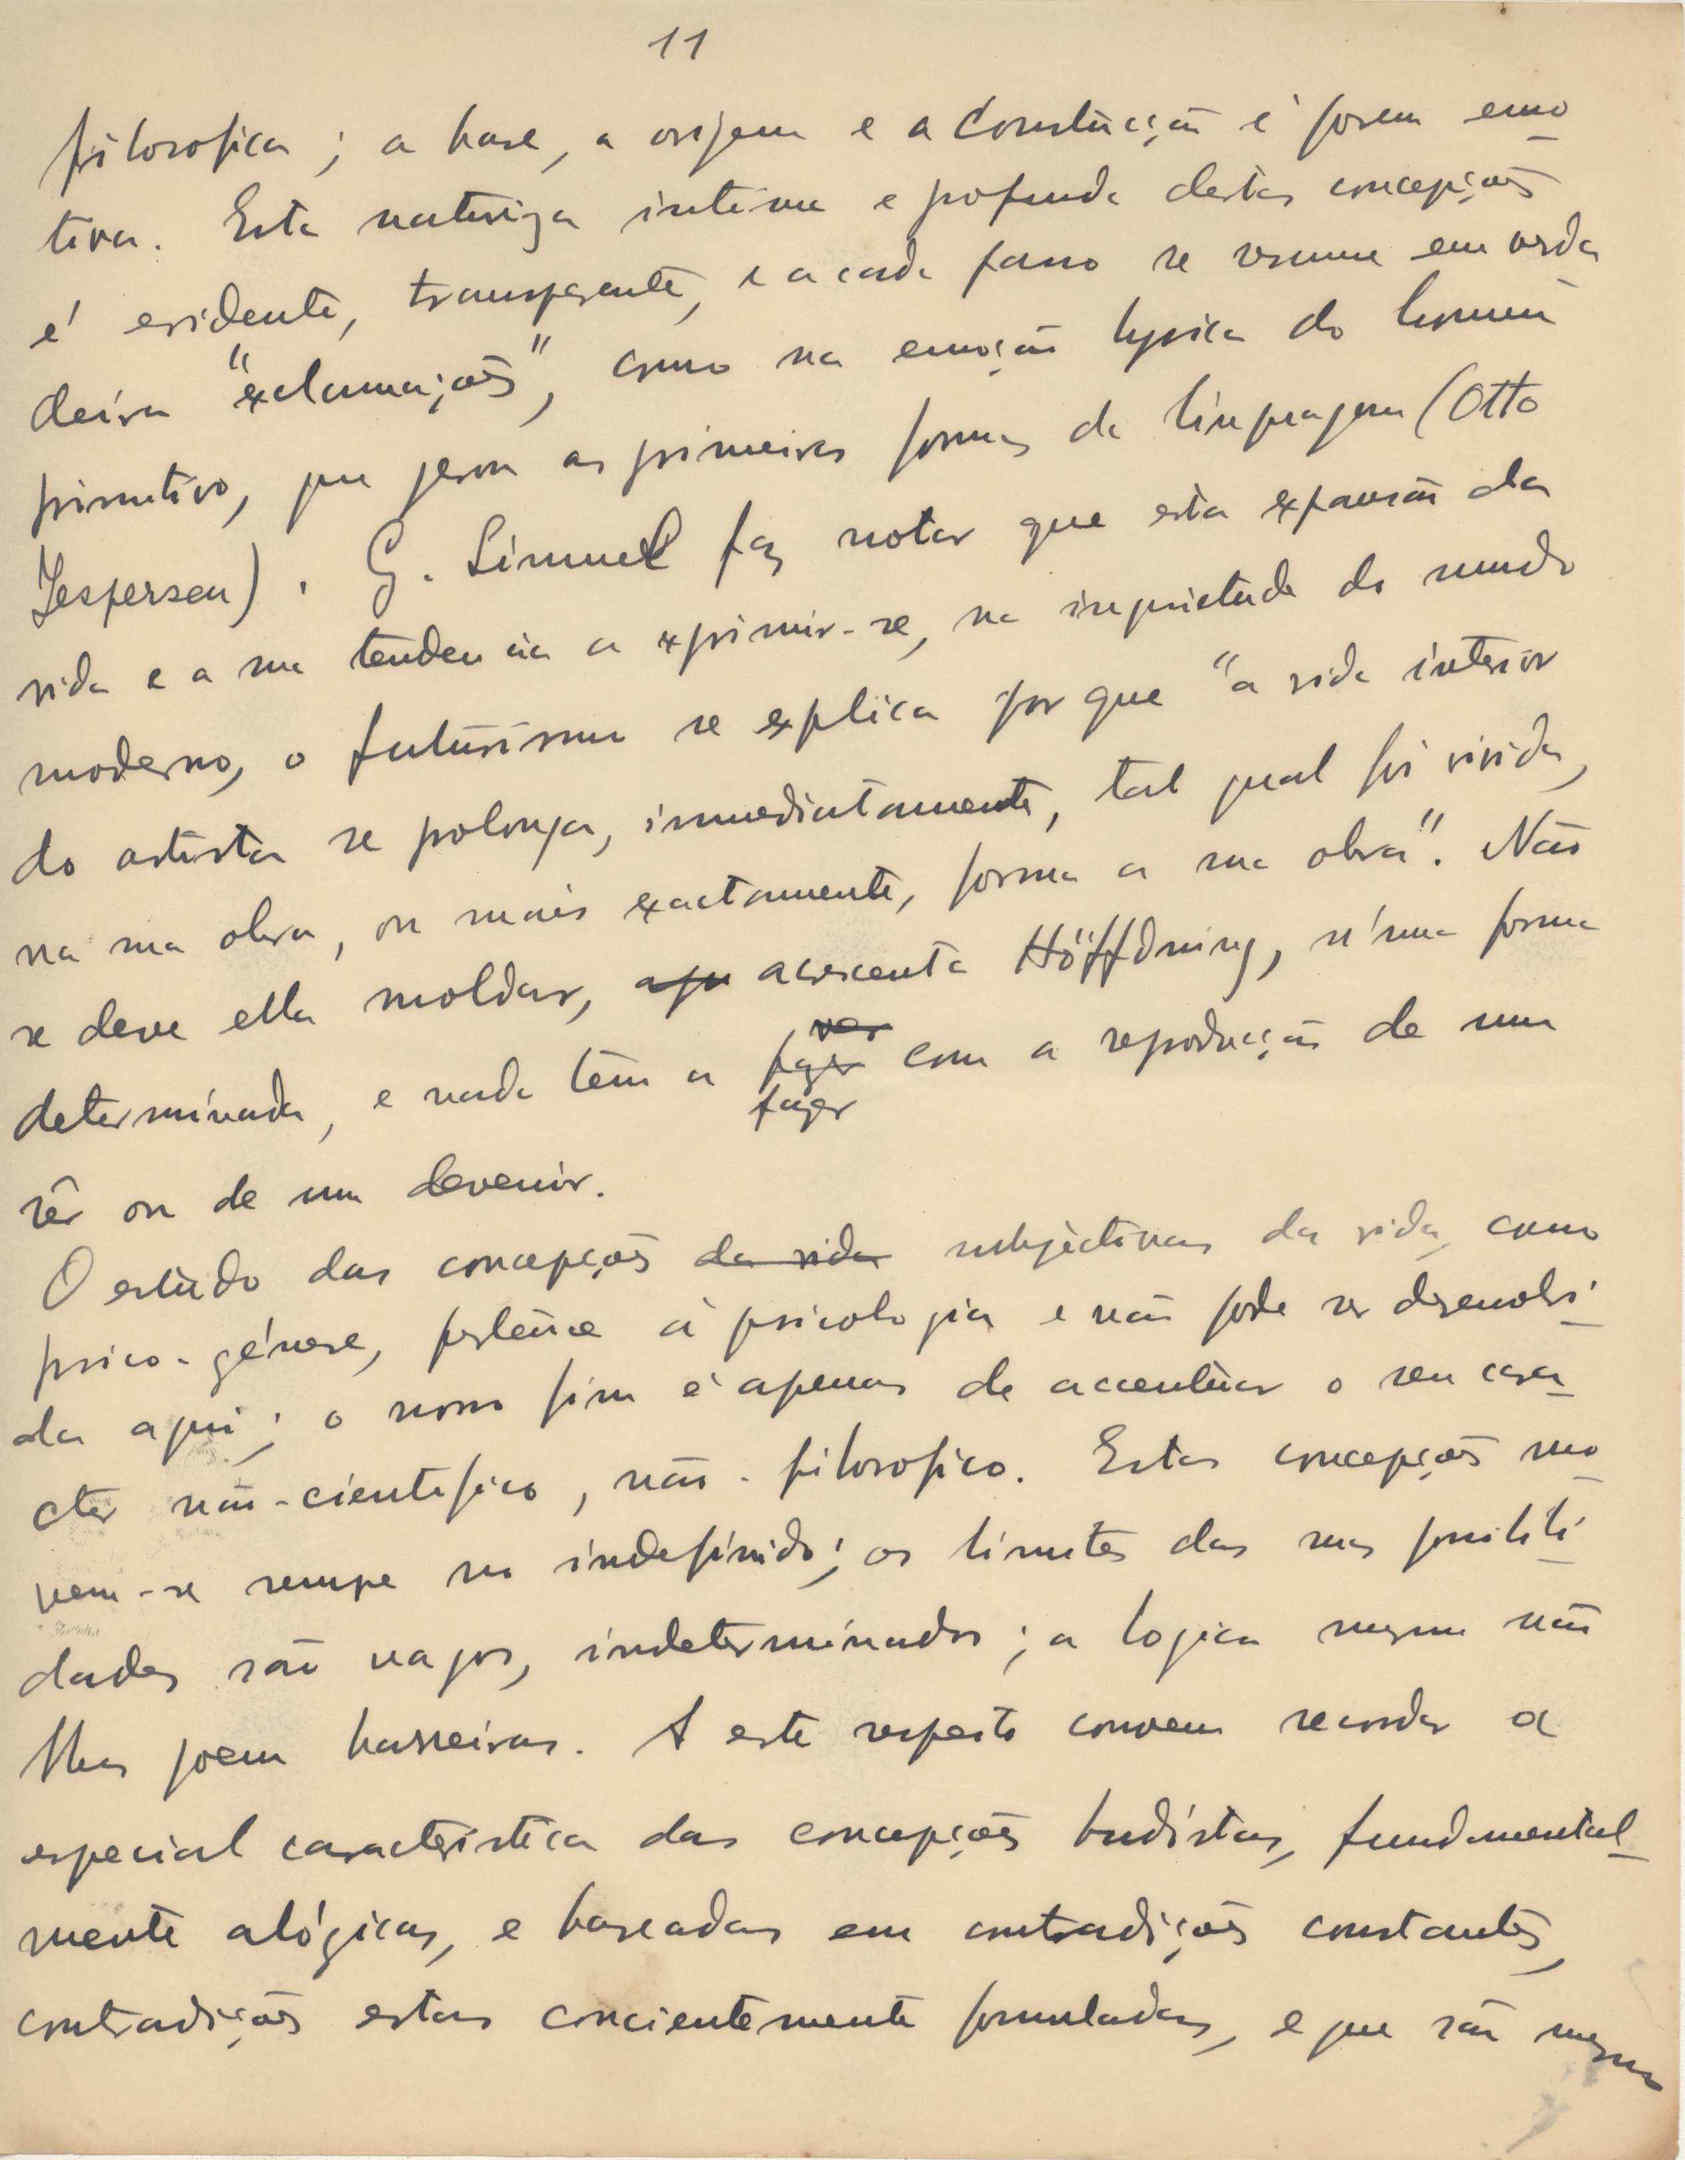 11
filosofica; a base, a origem e a construcção é porem emo-
tiva. Esta natureza intima e profunda destas concepções
é evidente, transparente, e a cada passo se resume em verda
deiras "exclamações", como na emoção lyrica do homem
primitivo, que gerou as primeiras formas de linguagem (Otto
Jespersen). G. Simmel faz notar que esta expansão da
vida e a sua tendencia a exprimir-se, na inquietude do mundo
moderno, o futurismo se explica por que "a vida interior
do artista se prolonga, immediatamente, tal qual foi vivida,
na sua obra, ou mais exactamente, forma a sua obra". Não
se deve ella moldar, acrescenta Höffdning, n'uma forma
determinada, e nada têm a ver fazer fazer com a reproducção de um
sêr ou de um devenir.
O estudo das concepções da vida subjectivas da vida, como
psico-génese, pertence á psicologia e não pode ser desenvolvi-
da aqui; o nosso fim é apenas de accentuar o seu cara-
cter não-cientifico, não-filosofico. Estas concepções mo-
vem-se sempre no indefinido; os limites das suas possibili-
dades são vagos, indeterminados; a logica mesmo não
lhes põem barreiras. A este respeito convem recordar a
especial caracteristica das concepções budistas, fundamental-
mente alógicas, e baseadas em contradições constantes,
contradições estas concientemente formuladas, e que são mesmo